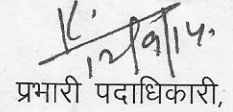 12/9/14.
प्रभारी पदाधिकारी,